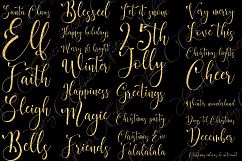 Santa Claus
Elf
Faith
Sleigh
Bells
Blessed
Happy holidays
Merry & bright
Winter
Happiness
Magic
Friends
Let it snow
25th
Jolly
Greetings
Christmas party
Christmas Eve
Falalalala
Very merry
Love this
Christmas lights
Cheer
Winter wonderland
Days til Christmas
December